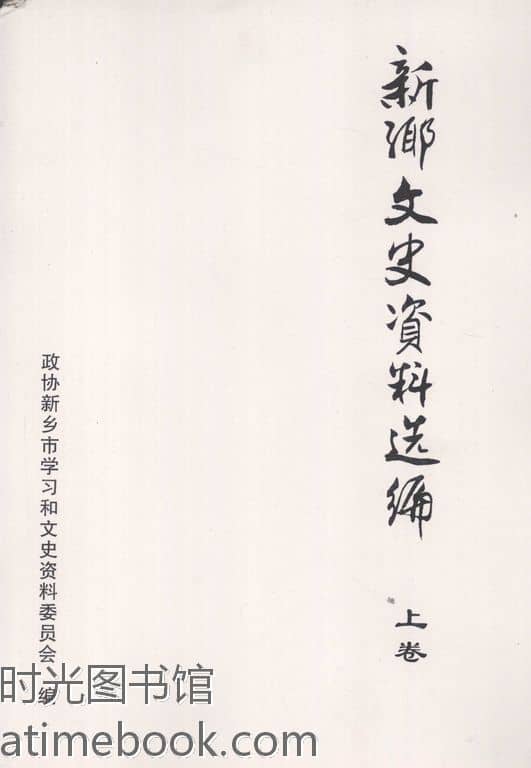 新鄉文史資料选编
上卷
政协新乡市学习和文史资料委员会 编
时光图书馆
atimebook.com